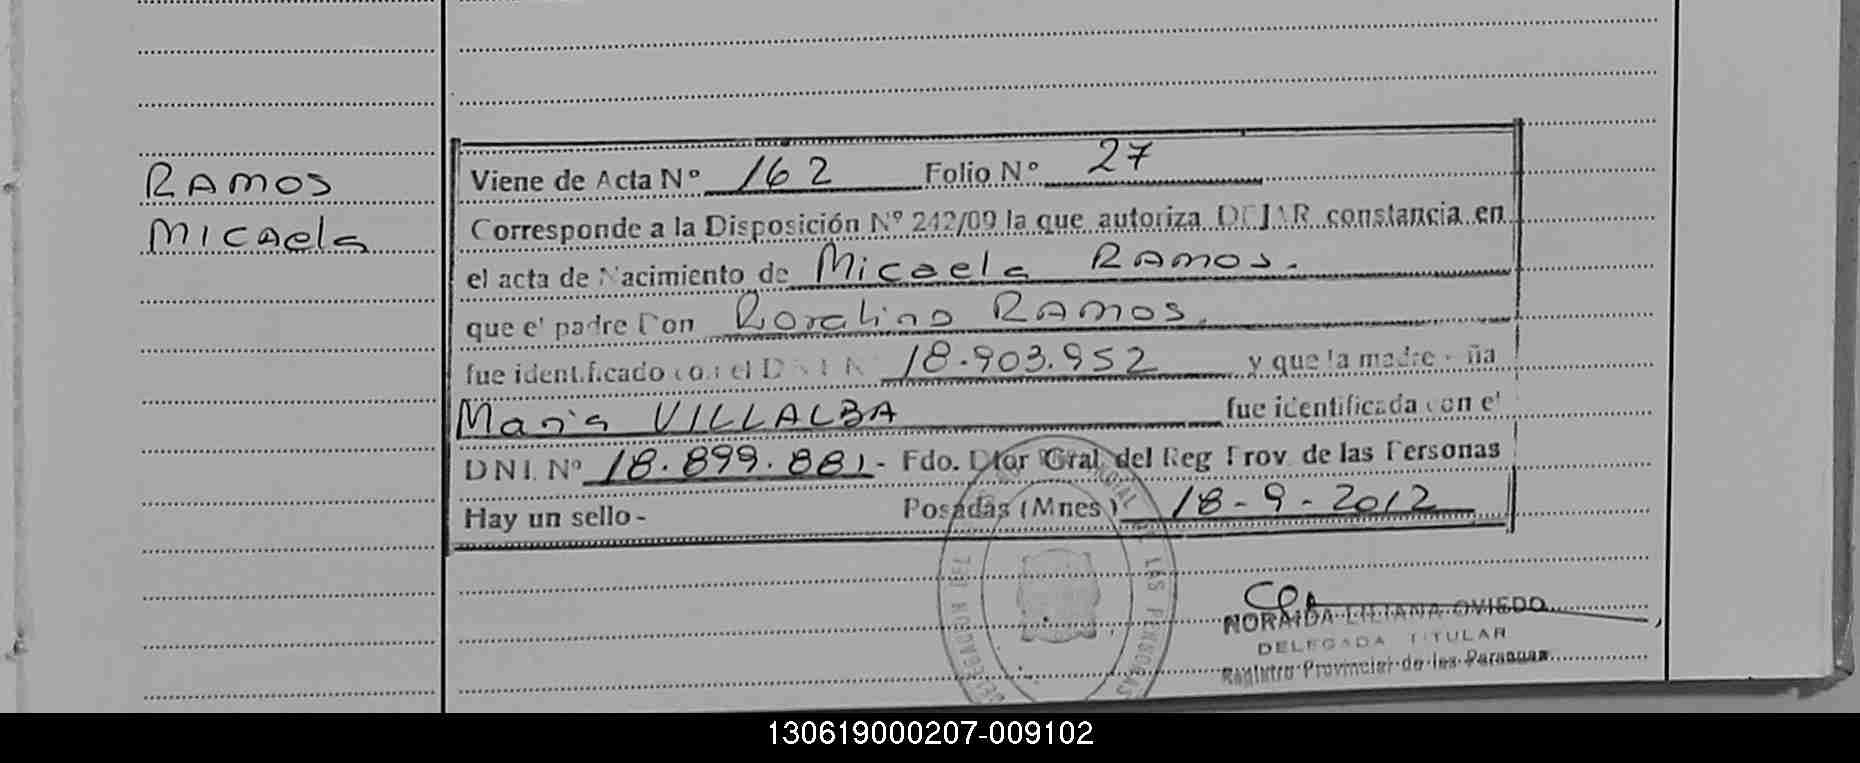 RAMOS
Micaela
Viene de Acta Nº 162 Folio Nº 27
Corresponde a la Disposición Nº 242/09 la que autoriza DEJAR constancia en
el acta de Nacimiento de Micaela RAMOS.
que el padre Don Rosalino RAMOS.
fue identificado con el DNI Nº 18.903.952 y que la madre Doña
Maria VILLALBA fue identificada con el
DNI. Nº 18.899.881- Fdo. Dtor Gral del Reg Prov de las Personas
Hay un sello - Posadas (Mnes) 18-9-2012
NORAIDA LILIANA OVIEDO
DELEGADA TITULAR
Registro Provincial de las Personas
130619000207-009102